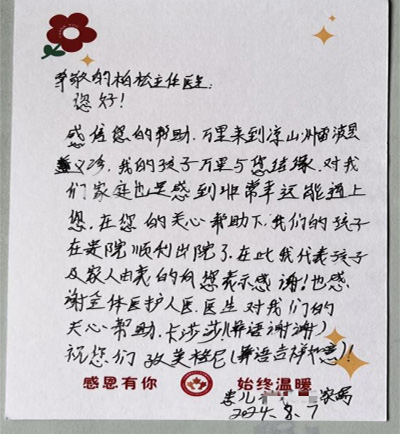 尊敬的柏松主任医生:
您好!
感恩您的帮助,万里来到凉山州雷波县
义诊,我的孩子万里与您结缘,对我
们家庭也是感到非常幸运能遇上
您,在您的关心帮助下,我们的孩子
在贵院顺利出院了,在此我代表孩子
及家人由衷的向您表示感谢!也感
谢全体医护人医,医生对我们的
关心帮助,卡莎莎!(彝语谢谢)
祝您们孜莫格尼(彝语吉祥如意)!
感恩有你 始终温暖
患儿 家属
2024.8.7